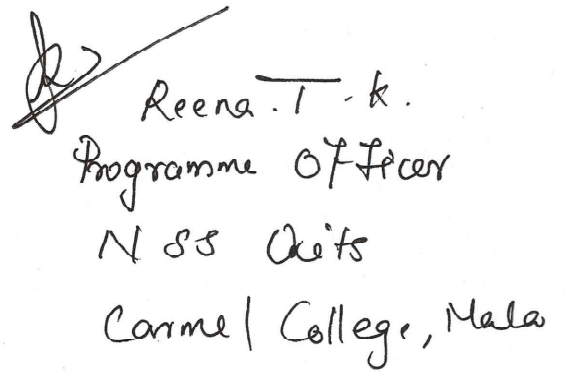 Reena. T. K.
Programme Officer
NSS Units
Carmel College, Mala